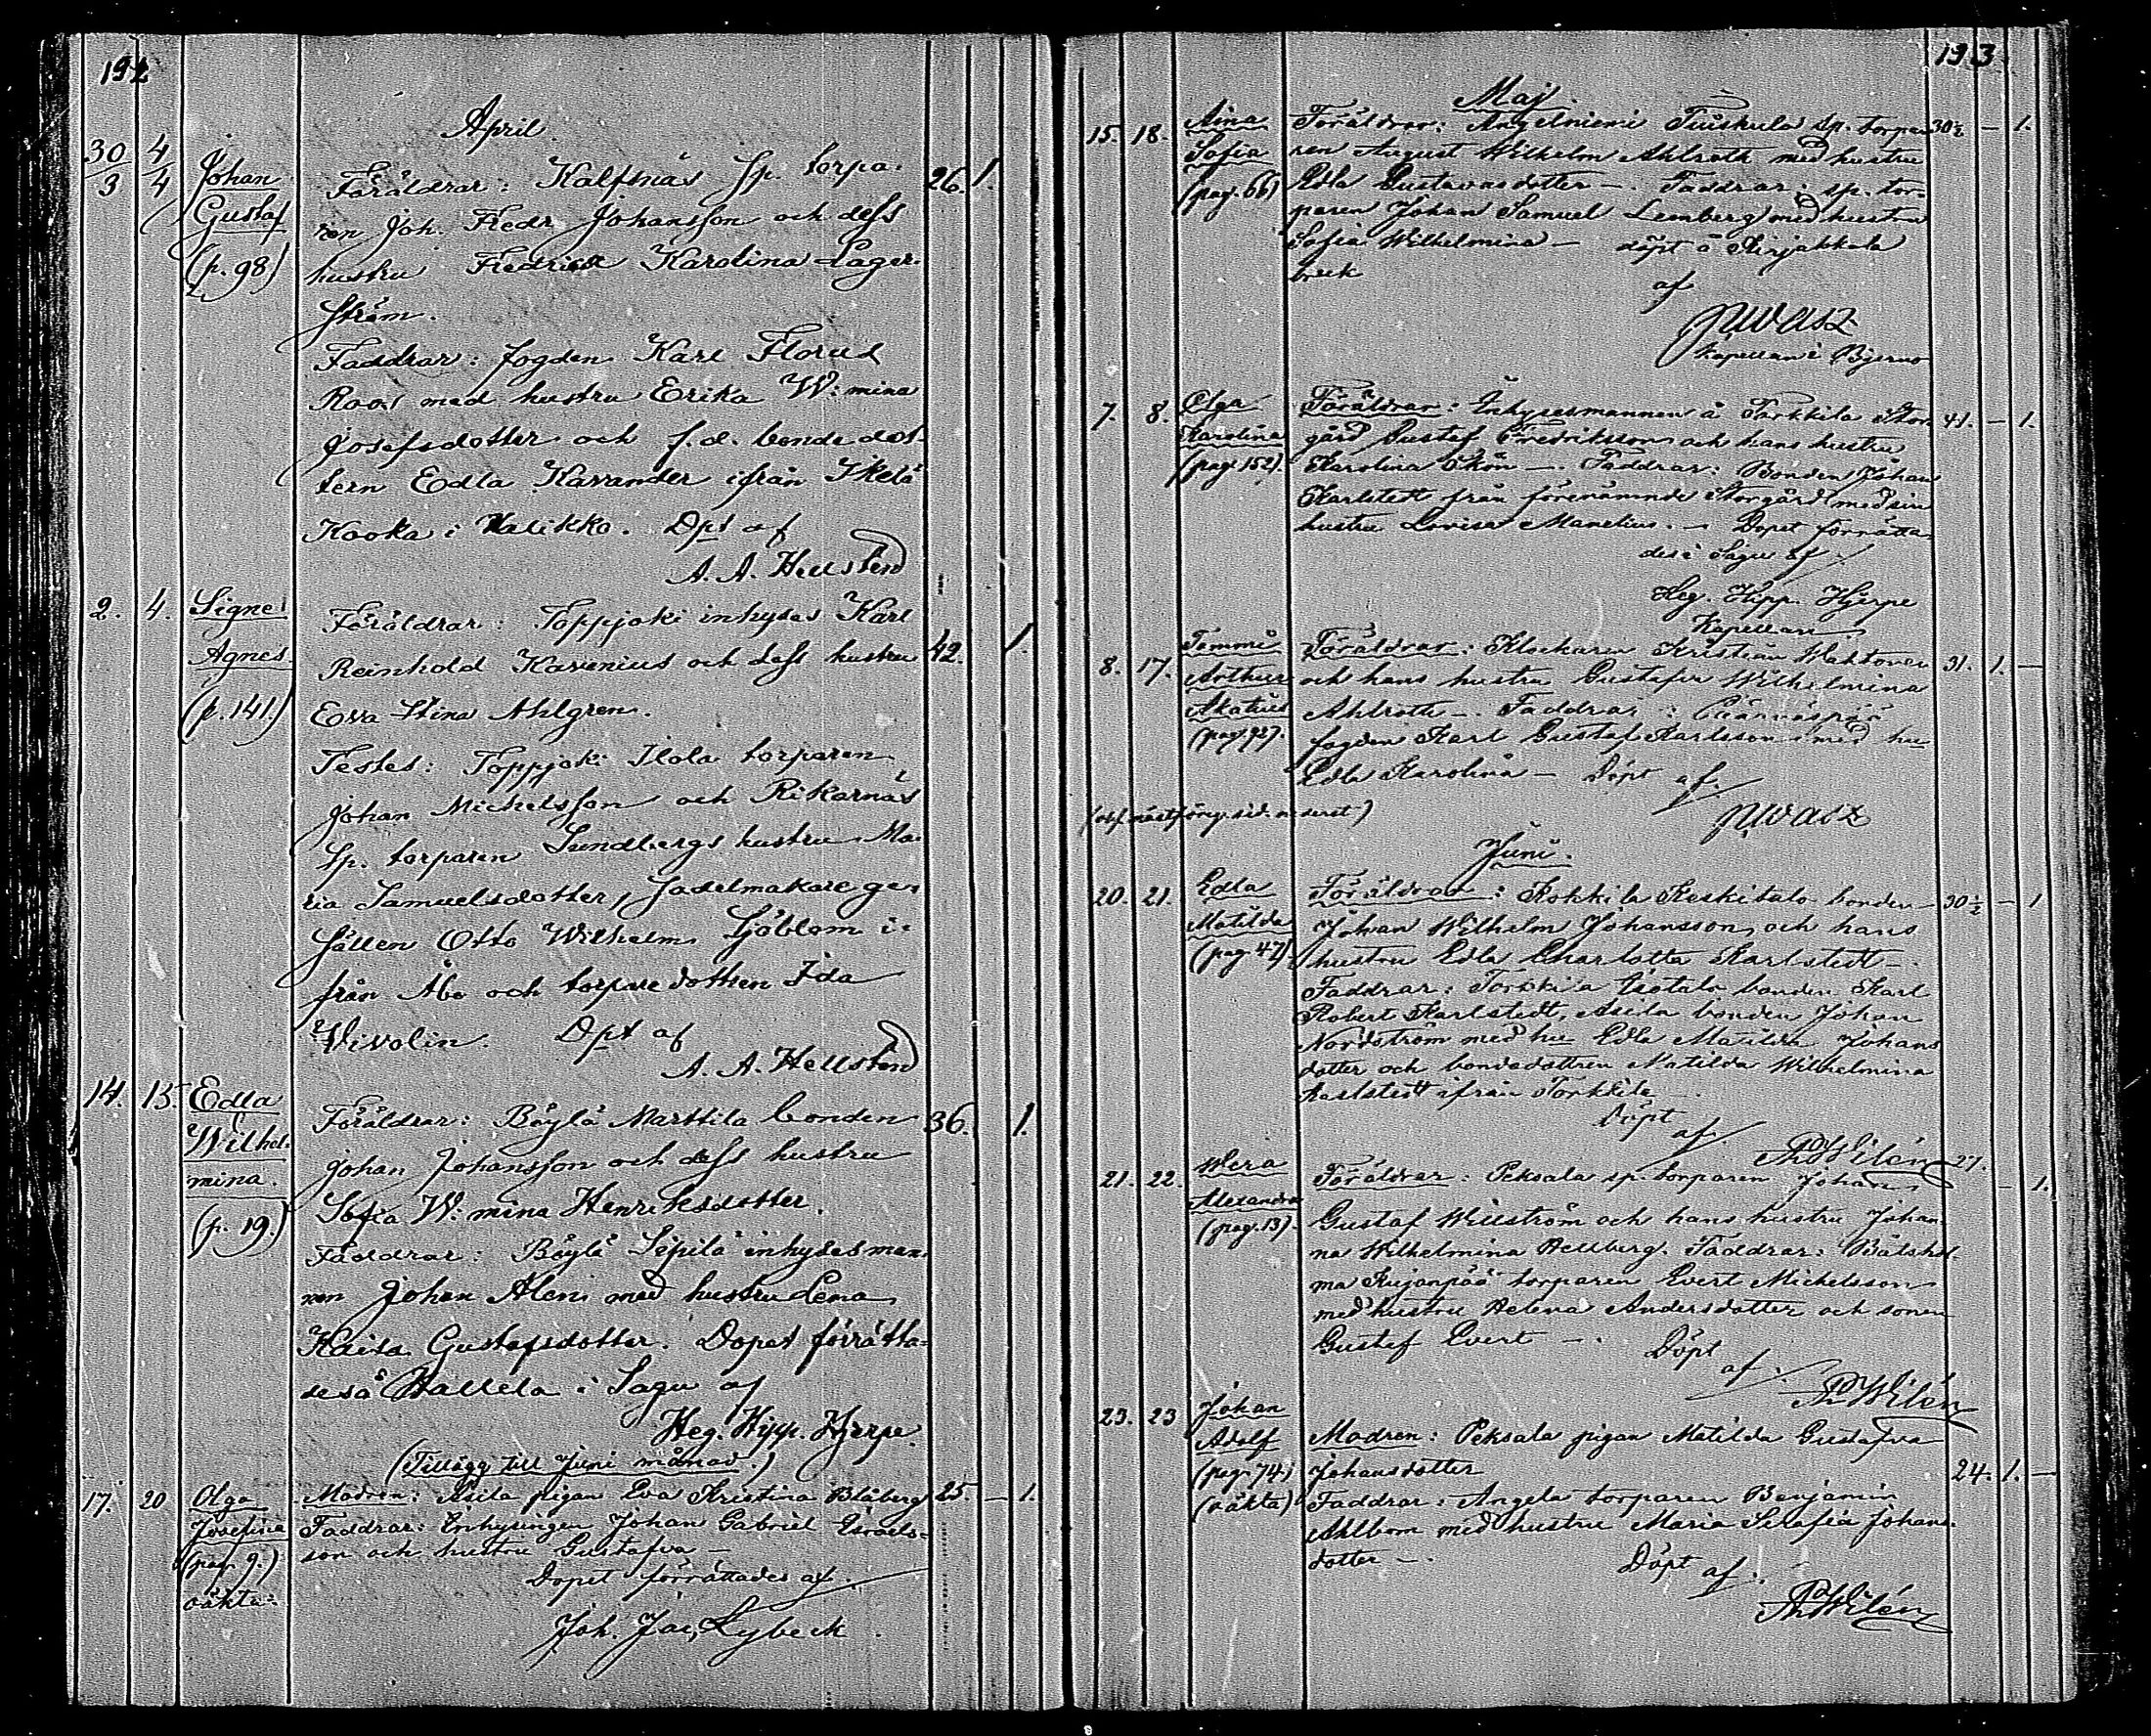 192
April
30/3 4/4 Johan Föräldrar: Kalfsnäs sp. torpa- 26. 1.
Gustaf ren Joh. Fredr. Johansson och dess
(p. 98) hustru Fredrica Karolina Lager-
ström.
Faddrar: fogden Karl Florus
Roos med hustru Erika W:mina
Josefsdotter och f.d. bondedot-
tern Edla Kavander ifrån Ikelä
Kooka i Halikko. Dpt af
A. A. Hellsten
2. 4. Signe Föräldrar: Toppjoki inhyses Karl
Agnes Reinhold Kavenius och dess hustru 42. 1.
(p. 141.) Eva Stina Ahlgren.
Testes: Toppjoki Ilola torparen
Johan Michelsson och Rikarnäs
Sp. torparen Sundbergs hustru Ma-
ria Samuelsdotter, sadelmakarege-
sällen Otto Wilhelm Sjöblom i-
från Åbo och torparedottren Ida
Vivolin. Dpt af
A. A. Hellsten
14. 15. Edla Föräldrar: Böylä Marttila bonden 36. 1.
Wilhel- Johan Johansson och dess hustru
mina. Sofia W:mina Henriksdotter.
(p. 19.) Faddrar: Böylä Seppilä inhysesman-
nen Johan Alen med hustru Lena
Kaisa Gustafsdotter. Dopet förrätta-
des å Hallela i Sagu af
Heg. Hipp. Hjerpe.
(Tillägg till Juni månad.)
17. 20 Olga Modren: Asila pigan Eva Kristina Blåberg 25. – 1.
Josefina Faddrar: Inhysingen Johan Gabriel Israels-
(pag. 9.) son och hustru Gustafva –
oäkta: Dopet förrättades af.
Joh. Jac. Lybeck.
193
Maj.
15. 18. Aina Föräldrar: Angelniemi Tuiskula sp. torpa- 30½ – 1.
Sofia ren August Wilhelm Ahlroth med hustru
(pag. 66) Edla Gustavasdotter –. Faddrar: sp. tor-
paren Johan Samuel Lemberg med hustru
Sofia Wilhelmina – döpt å Kirjakkala
bruk
af
Kapellan i Bjerno
7. 8. Olga Föräldrar: Inhysesmannen å Torkkila Stor- 41. – 1.
Karolina gård Gustaf Fredriksson och hans hustru
(pag. 152). Karolina Ökön –. Faddrar: Bonden Johan
Karlstedt från förenämnde Storgård med sin
hustru Lovisa Manelius. – Dopet förrätta-
des i Sagu af
Heg. Hipp. Hjerpe
Kapellan
8. 17. Tammi Föräldrar: Klockaren Kristian Wahtonen 31. 1. –
Arthur och hans hustru Gustafva Wilhelmina
Akatius Ahlroth –. Faddrar:
(pag. 92). fogden Karl Gustaf Karlsson med hu
Edla Karolina – Döpt af.
(obs. nästföreg. sid. nederst)
Juni.
20. 21. Edla Föräldrar: Kokkila Keskitalo bonden 30½ – 1
Matilda Johan Wilhelm Johansson, och hans
(pag. 47). hustru Edla Charlotta Karlstedt –.
Faddrar: Torkkila Isotalo bonden Karl
Robert Karlstedt, Asila bonden Johan
Nordström med hu Edla Matilda Johans
dotter och bondedottren Matilda Wilhelmina
Karlstedt ifrån Torkkila –.
Döpt
af
Th Wilén
21. 22. Wera Föräldrar: Peksala sp. torparen Johan 27. – 1.
Alexandra Gustaf Willström och hans hustru Johan-
(pag. 13). na Wilhelmina Hellberg. Faddrar: Båtshol-
ma Kujanpää torparen Evert Michelsson
med hustru Helena Andersdotter och sonen
Gustaf Evert –. Döpt
af.
Th Wilén
23. 23 Johan
Adolf Modren: Peksala pigan Matilda Gustafva
(pag. 74.) Johansdotter 24. 1. –
(oäkta) Faddrar: Angela torparen Benjamin
Ahlbom med hustru Maria Serafia Johans-
dotter –. Döpt af.
Th Wilén